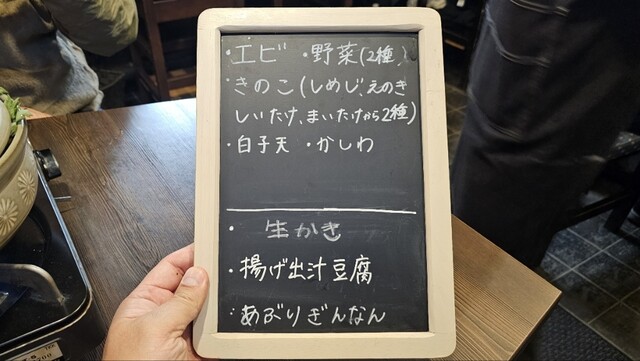 ・エビ ・野菜(2種)
・きのこ(しめじ、えのき
しいたけ、まいたけから2種)
・白子天 ・かしわ
・ 生かき
・揚げ出汁豆腐
・あぶりぎんなん